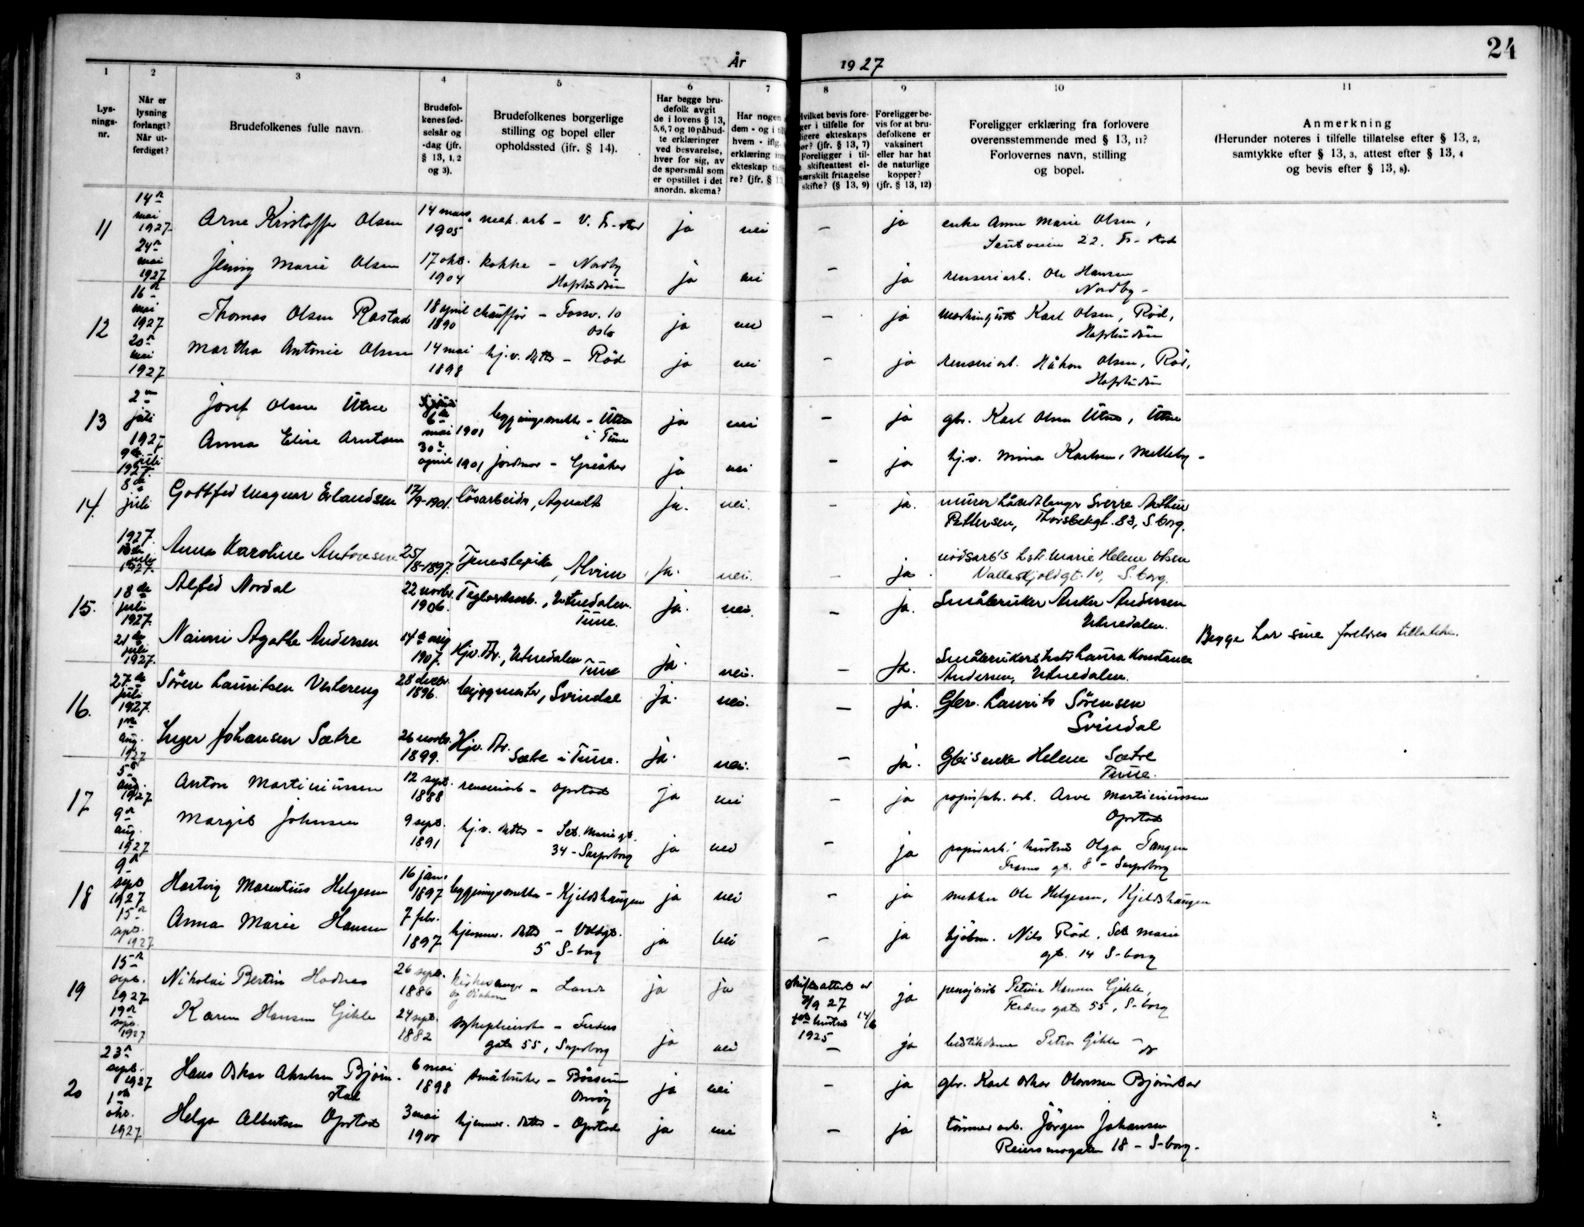 År 1927
24
1 2 3 4 5 6 7 8 9 10 11
Lys-
nings-
nr.
Når er
lysning
forlangt?
Når ut-
ferdiget?
Brudefolkenes fulle navn.
Brudefol-
kenes fød-
selsår og
-dag (jfr.
§ 13, 1, 2
og 3).
Brudefolkenes borgerlige
stilling og bopel eller
opholdssted (jfr. § 14).
Har begge bru-
defolk avgit
de i lovens § 13,
5, 6, 7 og 10 påbud-
te erklæringer
ved besvarelse,
hver for sig, av
de spørsmål som
er opstillet i det
anordn. skema?
Har nogen
dem - og i
hvem - ifg.
erklæring
ekteskap
re? (jfr. §
Hvilket bevis fore-
ger i tilfelle for
ligere ekteskaps
ør? (jfr. § 13, 7)
Foreligger i til-
skifteattest el-
særskilt fritagelse
skifte? (§ 13, 9)
Foreligger be-
vis for at bru-
defolkene er
vaksinert
eller har hat
de naturlige
kopper?
(jfr. § 13, 12)
Foreligger erklæring fra forlovere
overensstemmende med § 13, 11?
Forlovernes navn, stilling
og bopel.
Anmerkning
(Herunder noteres i tilfelle tillatelse efter § 13, 2,
samtykke efter § 13, 3, attest efter § 13, 4
og bevis efter § 13, 8).
11 14 mai 1927 Arne Kristoffer Olsen 14 mars 1905 mek. arb - V. Fr-stad ja nei - ja enke Anne Marie Olsen,
22. Fr-stad
24 mai 1927 Jenny Marie Olsen 17 okt. 1904 kokke - Nordby
Hafslundsøen ja nei - ja renseriarb. Ole Hansen
Nordby -
12 16 mai 1927 Thomas Olsen Rostad 18 april 1890 chauffør - Fossv. 10
Oslo ja nei - ja Karl Olsen, Rød,
20 mai 1927 Martha Antonie Olsen 14 mai 1898 hj.v. datter - Rød ja nei - ja renseriarb. Håkon Olsen, Rød,
13 2 juli 1927 Josef Olsen Utne 6 mai 1901 bygningssnekker - Utne
i Tune ja nei - ja gbr. Karl Olsen Utne, Utne
juli 1927 Anna Elise Arntsen 30 april 1901 jordmor - Greåker ja nei - ja hj.v. Mina Karlsen, Melleby -
14. 8 juli 1927. Gottfred Magnar Erlandsen 17/9-1901. løsarbeider, Agnalt ja. nei. - ja. murer Sverre Arthur
Pettersen, 83, S.borg.
1927. Anna Karoline Antonsen 25/8-1897. Tjenestepike, Alvim ja. nei. - ja. Marie Helene Olsen
10, S.borg.
15. 18 juli 1927. Alfred Nordal 22 novbr. 1906. Teglverksarb., Utnedalen.
Tune. ja. nei. - ja. Småbruker Anker Andersen
Utnedalen.
21 juli 1927. Nanni Agathe Andersen 14 aug 1907. Hjv. dtr., Utnedalen
Tune ja. nei. - ja. Laura Konstance
Andersen, Utnedalen.
Begge har sine foreldres tillatelse.
16. 27 juli 1927. Søren Lauritsen Vestereng 28 decbr 1896. byggmester, Svindal ja. nei. - ja. Gbr. Laurits Sørensen
Svindal
1 aug. 1927 Inger Johansen Sætre 26 novbr. 1899. Hjv. dtr.
Sætre i Tune. ja. nei. - ja. Gbr's enke Helene Sætre
Tune.
17 5 aug. 1927 Anton Martiniussen 12 sept. 1888 renseriarb - Opstad ja nei - ja papirfab. arb. Arve Martiniussen
Opstad
9 aug. 1927 Margit Johnsen 9 sept. 1891 hj.v. datter - Sct. Marie gt.
34 - Sarpsborg ja nei - ja papirarb. hustru Olga Tangen
gt. 8 - Sarpsborg
18 9 sept 1927 Hartvig Marentius Helgesen 16 jan. 1897 bygningssnekker - Kjeldshaugen ja nei - ja snekker Ole Helgesen, Kjeldshaugen
15 sept. 1927 Anna Marie Hansen 7 febr. 1897 hjemmev. datter - Voldgt.
5 S-borg ja nei - ja Nils Rød, Sct. Marie
gt. 14 S-borg
19 15 sept. 1927 Nikolai Bertin Hodnes 26 sept. 1886 kirkesanger
- Lande ja ja skifteattest av
/9 27
1925
ja Hansen Gikle,
gate 55, S-borg
19 sept. 1927 Karen Hansen Gikle 24 sept. 1882 sykepleierske -
gate 55, Sarpsborg ja nei - ja Petra Gikle - do
20 23 sept. 1927 Hans Oskar Akselsen Bjørn-
stad 6 mai 1898 småbruker -
ja nei - ja gbr. Karl Oskar Olavssen Bjørnstad
1 okt. 1927 Helga Albertsen Opstad 3 mai 1900 hjemmev. datter - Opstad ja nei - ja tømmerarb. Jørgen Johansen
18 - S-borg -